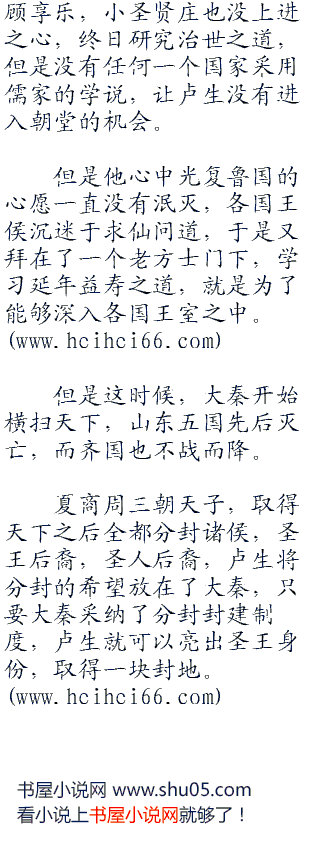 顾享乐，小圣贤庄也没上进
之心，终日研究治世之道，
但是没有任何一个国家采用
儒家的学说，让卢生没有进
入朝堂的机会。
但是他心中光复鲁国的
心愿一直没有泯灭，各国王
侯沉迷于求仙问道，于是又
拜在了一个老方士门下，学
习延年益寿之道，就是为了
能够深入各国王室之中。
(www.hcihci66.com)
但是这时候，大秦开始
横扫天下，山东五国先后灭
亡，而齐国也不战而降。
夏商周三朝天子，取得
天下之后全都分封诸侯，圣
王后裔，圣人后裔，卢生将
分封的希望放在了大秦，只
要大秦采纳了分封封建制
度，卢生就可以亮出圣王身
份，取得一块封地。
(www.hcihci66.com)
书屋小说网 www.shu05.com
看小说上书屋小说网就够了！